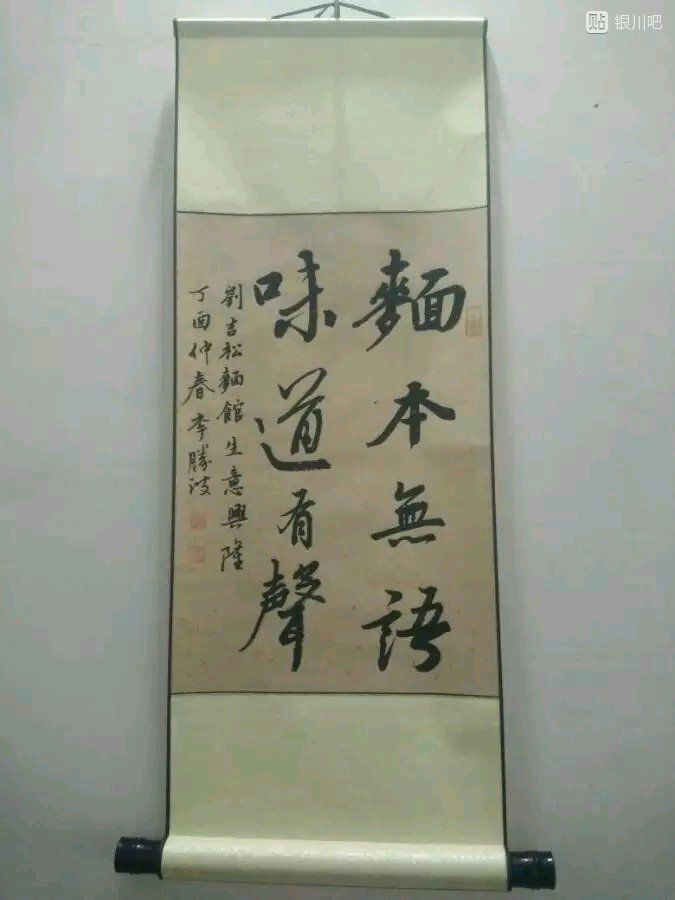 麵本無語
味道有聲
劉吉松麵館生意興隆
丁酉仲春李勝波
银川吧